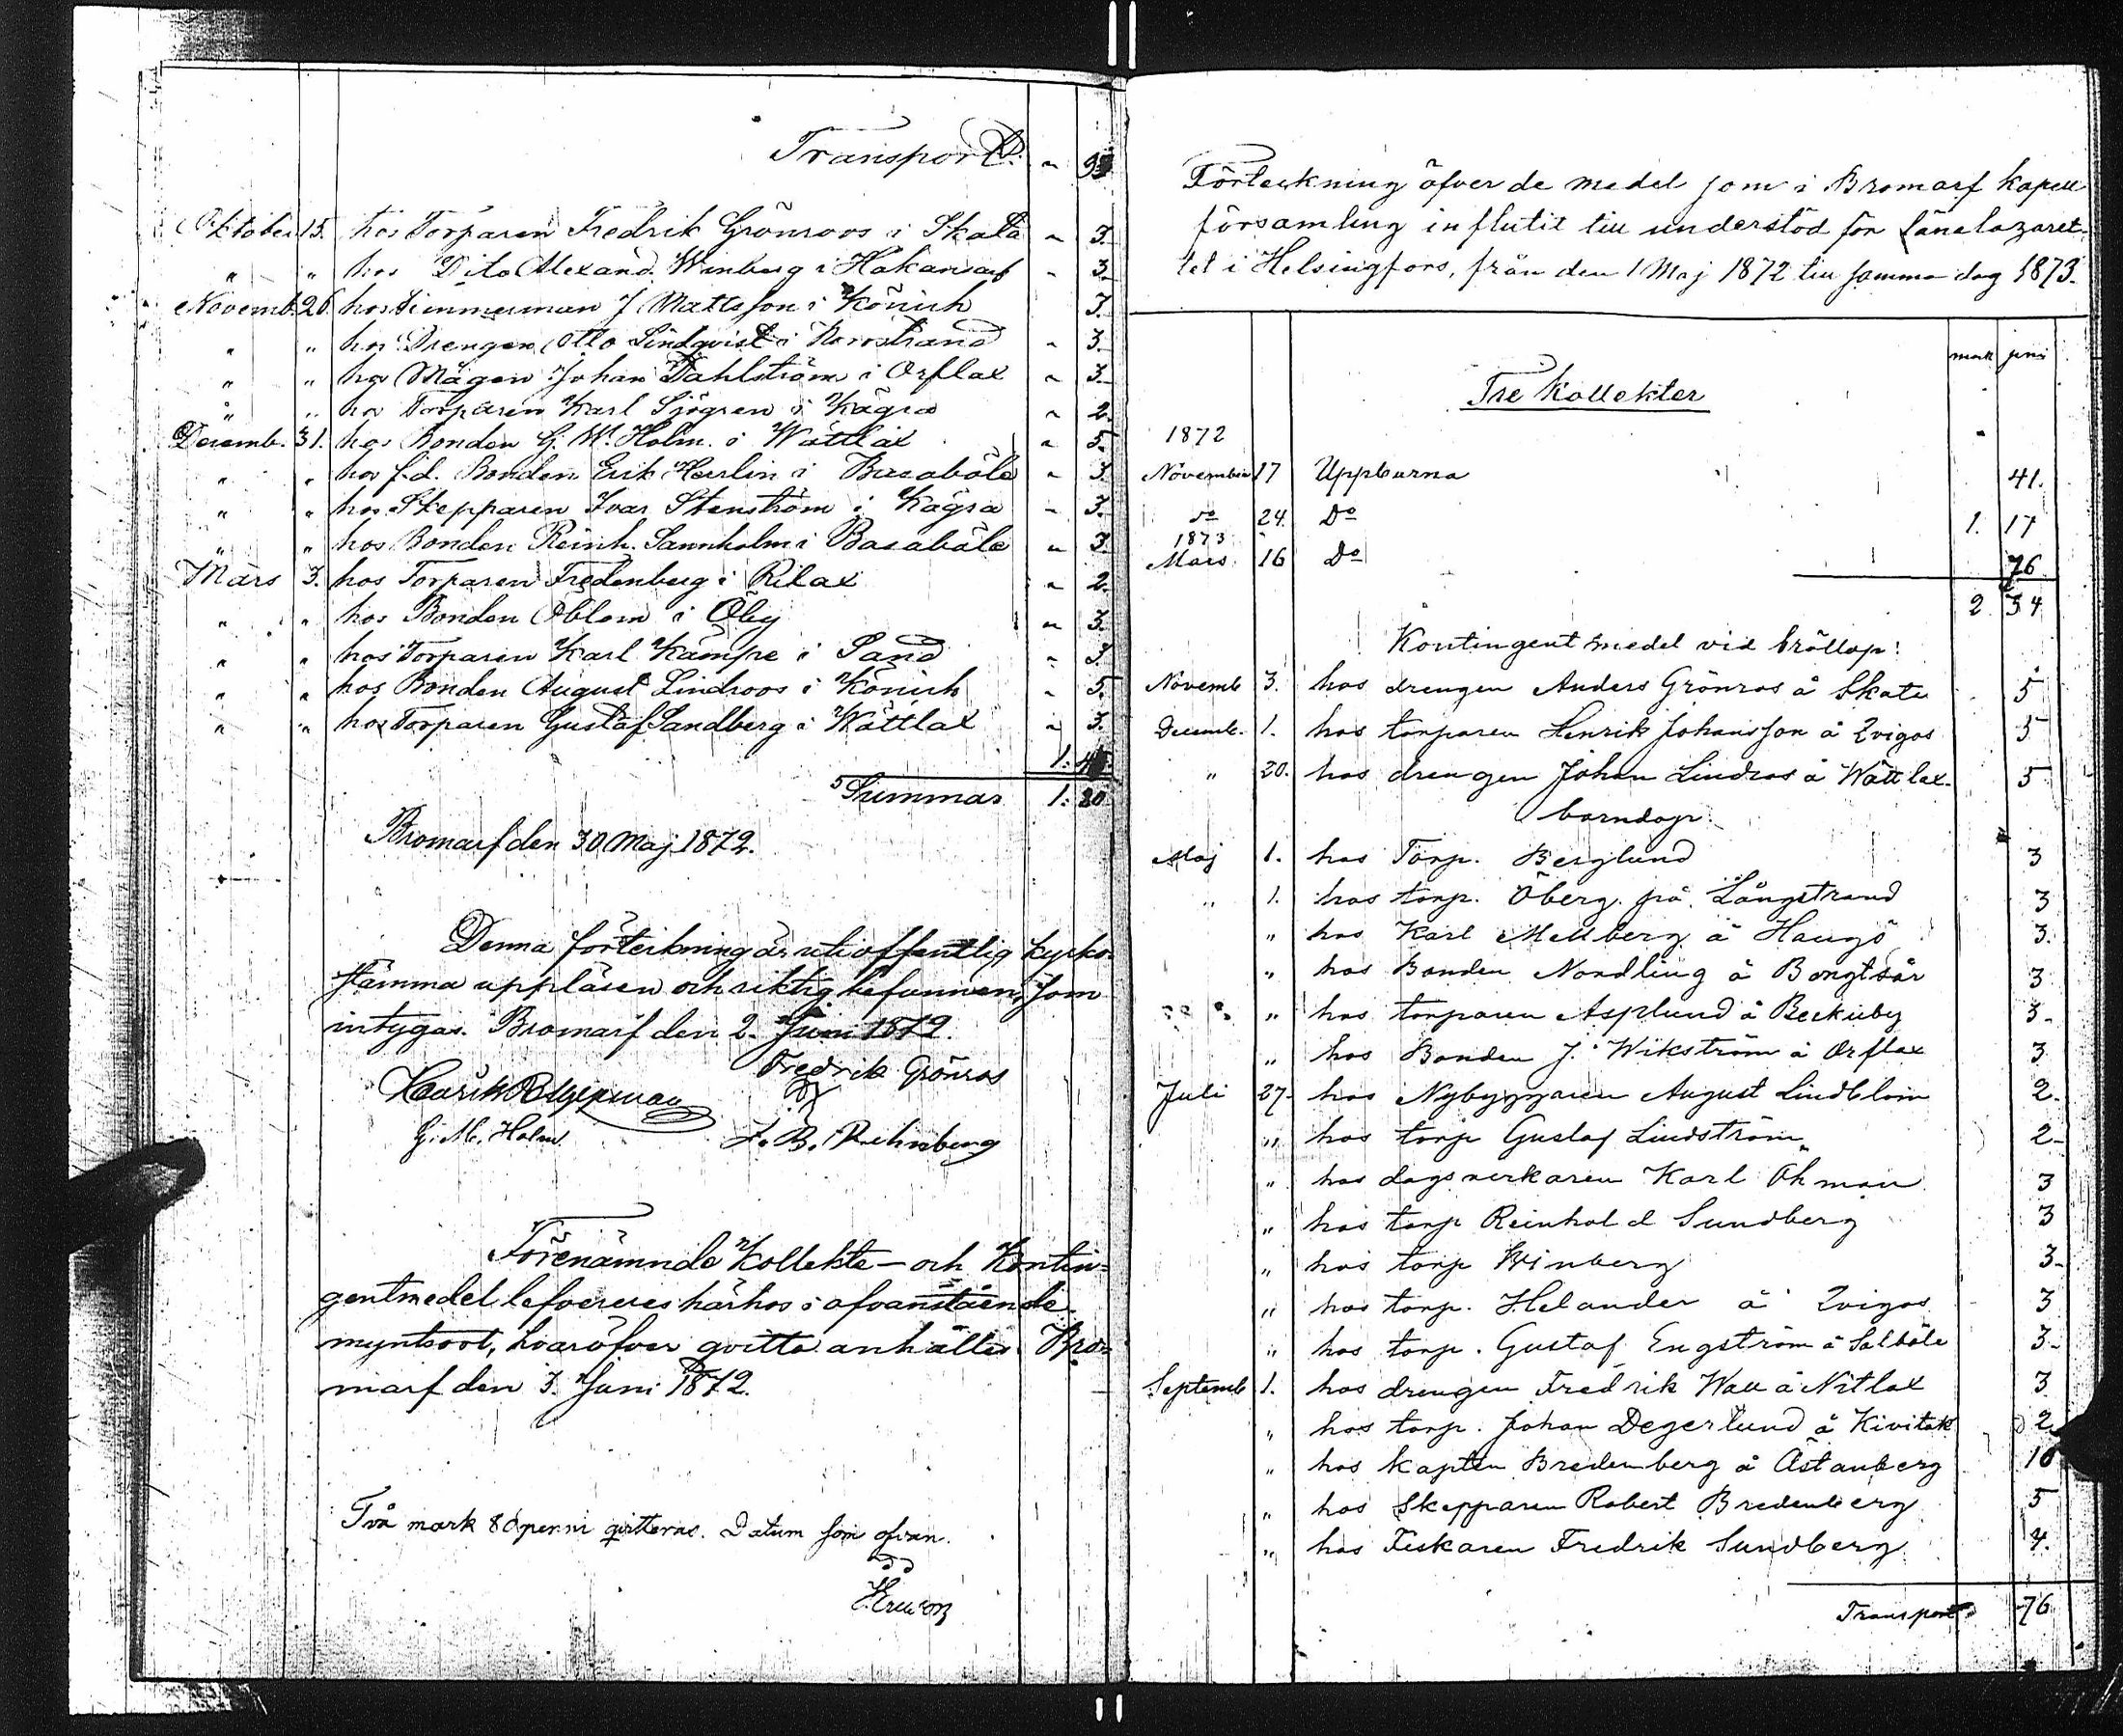 Transport. " 9
Oktober 15. hos Torparen Fredrik Grönroos i Skata " 3.
" " hos Dito Alexand. Winberg i Håkansarf " 3.
Novemb. 26. hos Timmerman J Mattsson i Könich 3.
" " hos Drengen Otto Lindqvist i Norrstrand " 3.
" " hos Mågen Johan Dahlström i Orflax " 3.
" " hos Torparen Karl Sjögren i Kågra " 2.
Decemb. 31. hos Bonden G. M. Holm i Wättlax " 5.
" " hos f.d. Bonden Erik Herrlin i Basaböle " 3.
" " hos Skepparen Ivar Stenström i Kågra " 3.
" " hos Bonden Reinh. Sannholm i Basaböle " 3.
Mars 3. hos Torparen Fredenberg i Rilax " 2.
" " hos Bonden Öblom i Öby " 3.
" " hos Torparen Karl Kämpe i Sand " 3
" " hos Bonden August Lindroos i Könich " 5.
" " hos Torparen Gustaf Sandberg i Wättlax " 3.
1:
Summas 1: 20
Bromarf den 30 Maj 1872.
Denna förteikning är uti offentlig kyrko-
stämma uppläsen och riktig befunnen, som
intygas. Bromarf den 2. Juni 1872.
Fredrik Grönros
G. M. Holm. J. B. Rehnberg
Förenämnde Kollekte- och Kontin-
gentmedel lefvereres härhos i ofvanstående
myntsort, hvaröfver qvitto anhålles. Bro-
marf den 3. Juni 1872.
Två mark 80 penni qvitteras. Datum som ofvan.
Förteckning öfver de medel som i Bromarf kapell
församling influtit till understöd för länelazaret-
tet i Helsingfors, från den 1 Maj 1872 till samma dag 1873.
mark pni
Tre Kollekter
1872
November 17 Uppburna 41.
do 24. Do 1. 17
1873
Mars 16 Do 76
2. 34
Kontingent medel vid bröllop:
Novemb 3. hos drengen Anders Grönros å Skata 5
Decemb. 1. hos torparen Henrik Johansson å Zvigos 5
" 20. hos drengen Johan Lindros å Wättlax. 5
barndop:
Maj 1. hos Torp. Berglund 3
" 1. hos torp. Öberg på Långstrand 3
" hos Karl Mellberg å Hangö 3.
" hos Bonden Nordling å Bengtsår 3
" hos torparen Asplund å Beckuby 3.
" hos Bonden J. Wikström å Orflax 3
Juli 27. hos Nybyggaren August Lindblom 2.
" hos torp Gustaf Lindström 2
" hos dagsverkaren Karl Öhman 3
" hos torp Reinhold Sundberg 3
" hos torp Winberg 3.
" hos torp. Helander å Zvigos 3
" hos torp. Gustaf Engström å Salböle 3.
Septemb 1. hos drengen Fredrik Wall å Nitlax 3
" hos torp. Johan Degerlund å Kivitok 2.
" hos kapten Bredenberg å Åstanberg 10
" hos Skepparen Robert Bredenberg 5
" hos Fiskaren Fredrik Sundberg 4.
Transport 76